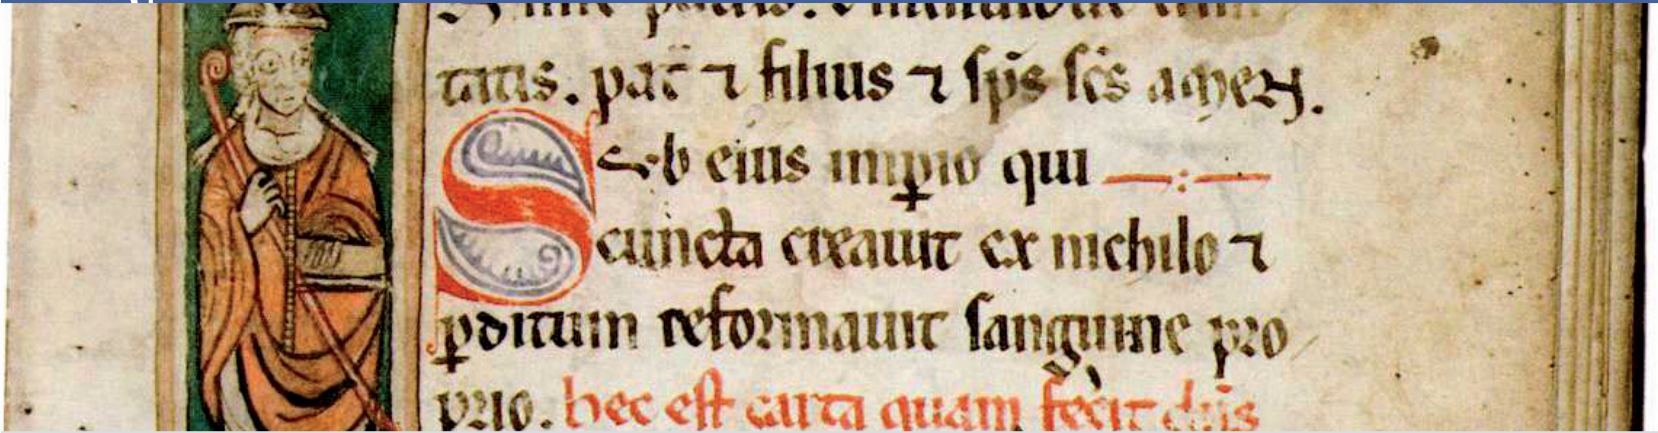 tatis. pat̄ ⁊ filius ⁊ sp̄s sc̄s amen.
Sub eius imꝑio qui
cuncta creauit ex nichilo ⁊
ꝑditum reformauit sanguine pro
prio. hec est carta quam fecit dn̄s